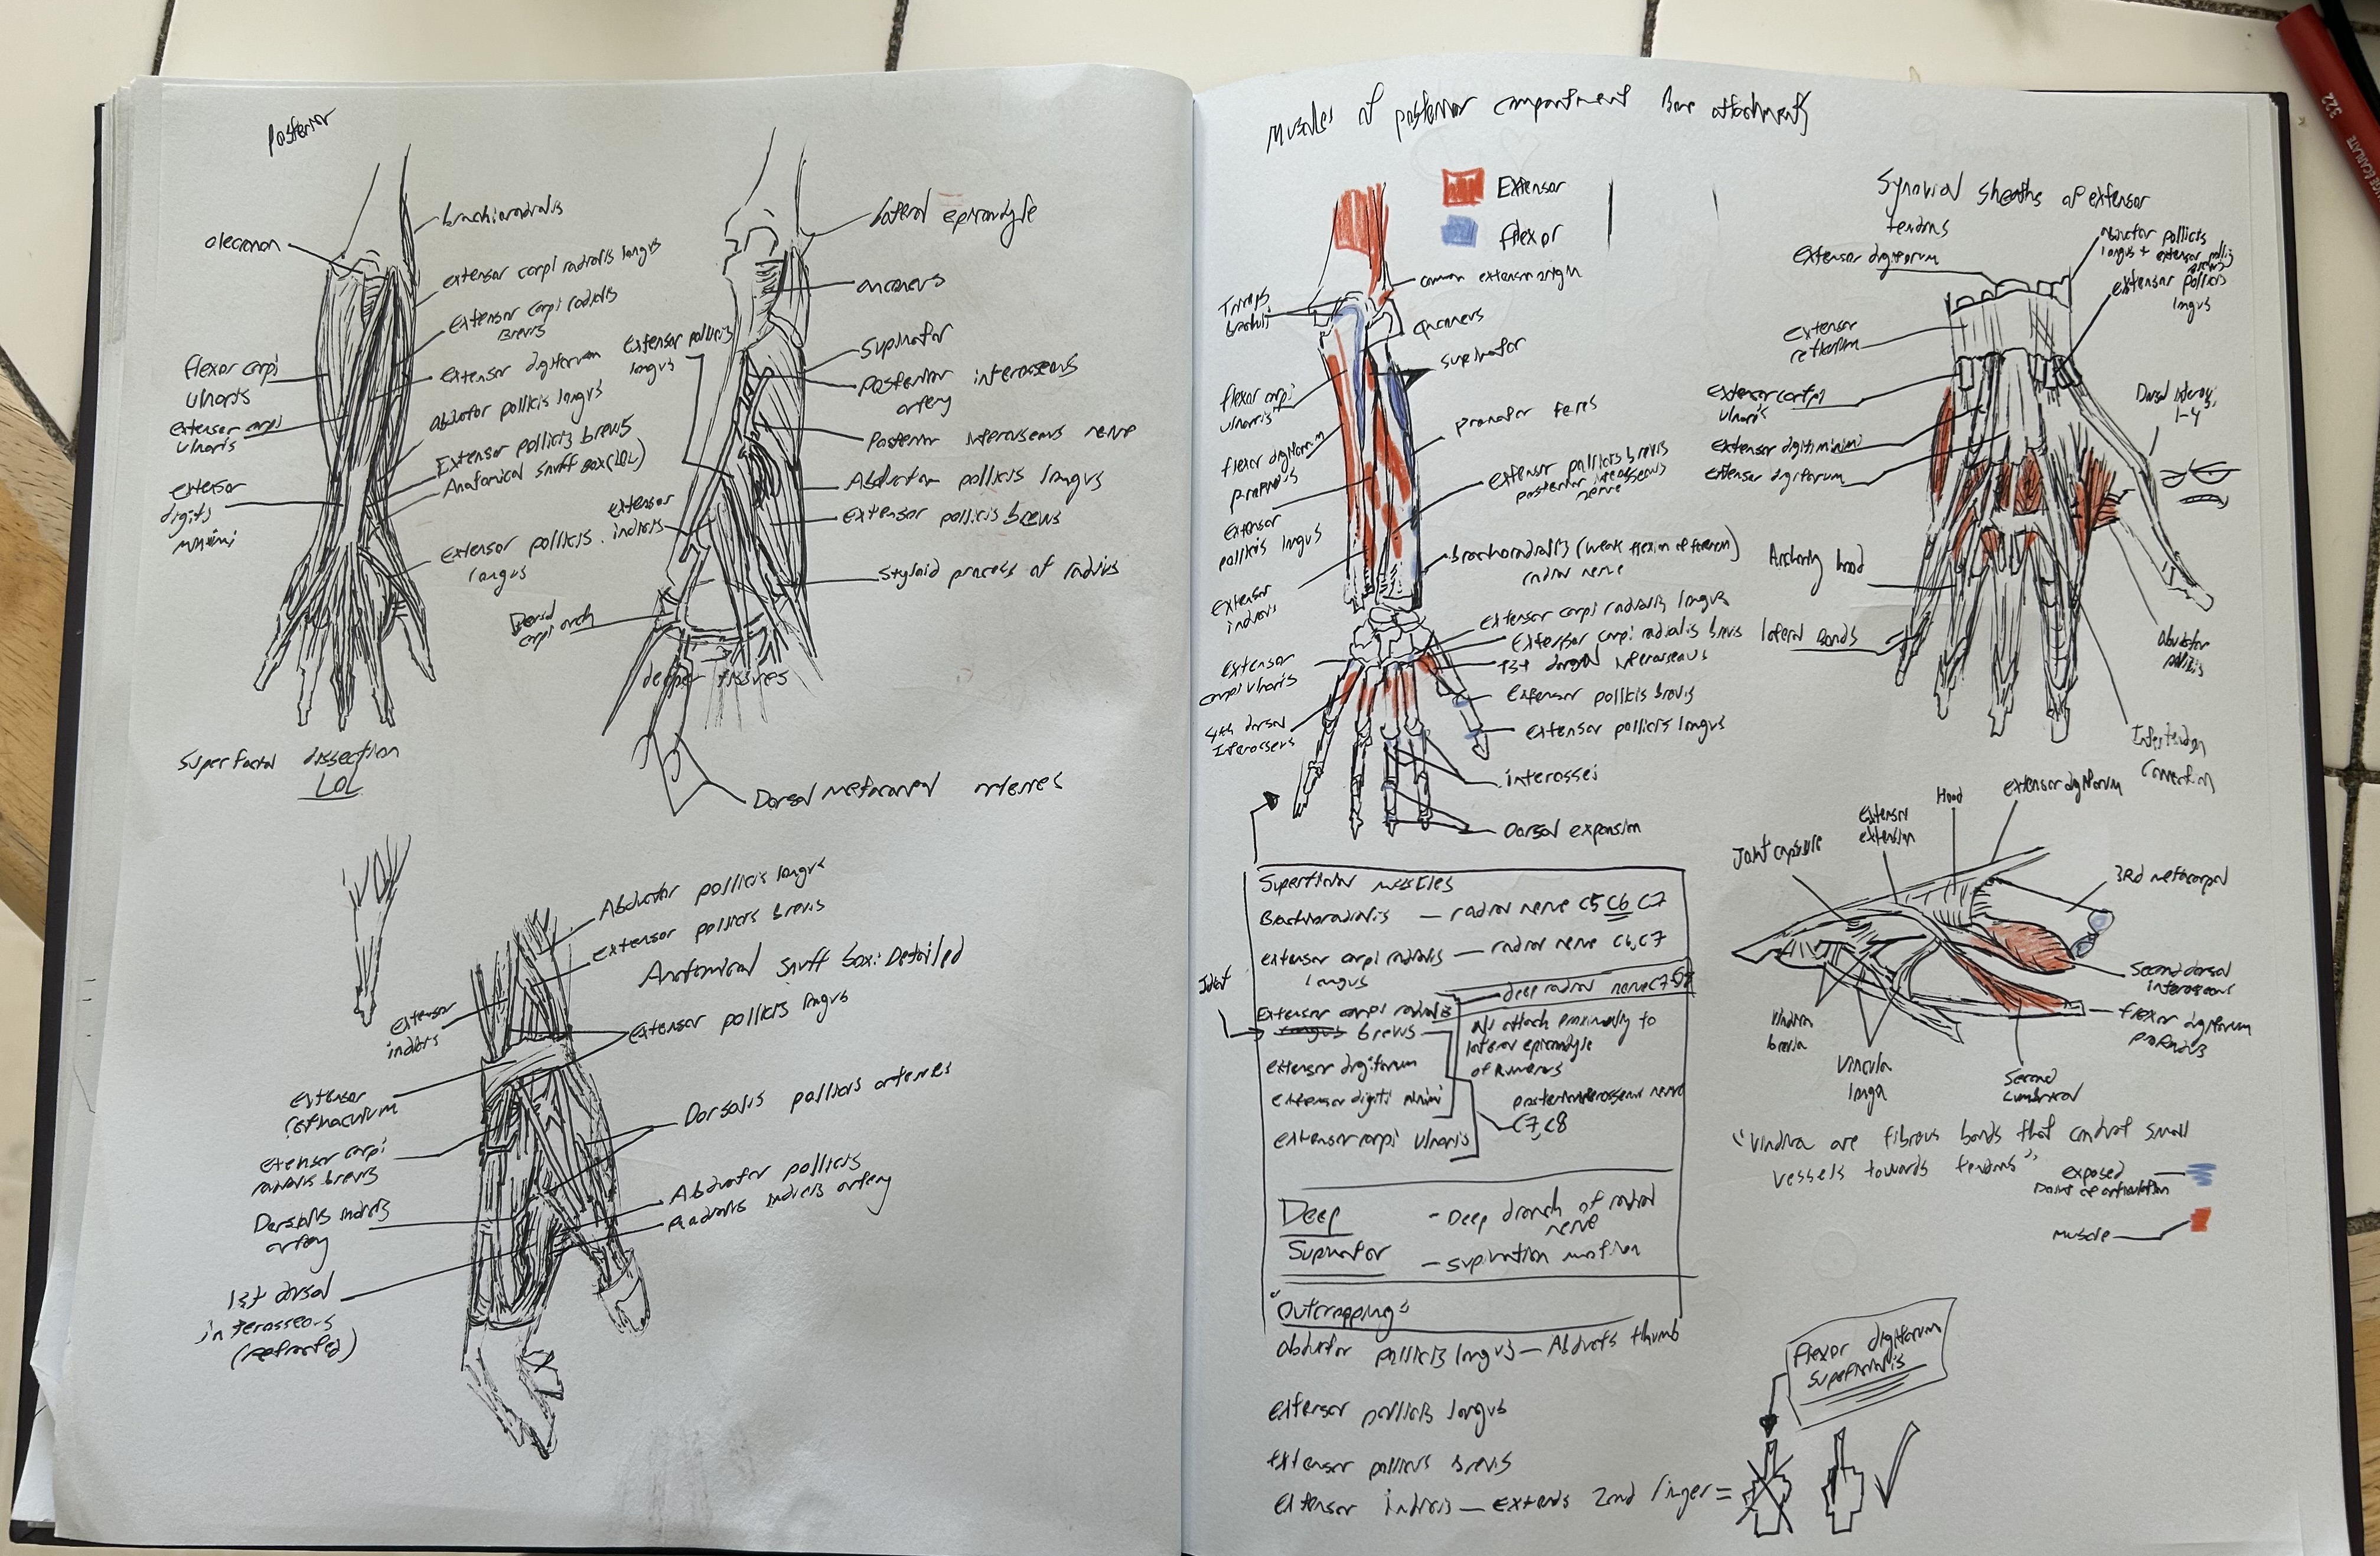 Posterior
olecranon
brachioradialis
extensor carpi radialis longus
Extensor carpi radialis
Brevis
extensor digitorum
flexor carpi
ulnaris
extensor carpi
ulnaris
abductor pollicis longus
Extensor pollicis brevis
Anatomical snuff box (LOL)
extensor
digiti
minimi
Extensor pollicis
longus
Superfactal dissection
LOL
lateral epicondyle
anconeus
Supinator
extensor pollicis
longus
Posterior interosseous
artery
Posterior interosseous nerve
Abductor pollicis longus
extensor
indicis
Extensor pollicis brevis
Styloid process of radius
Dorsal
carpi arch
deeper tissues
Dorsal metacarpal arteries
Abductor pollicis longus
extensor pollicis brevis
Anatomical snuff box: Detailed
extensor
indicis
extensor pollicis longus
extensor
retinaculum
Dorsalis pollicis arteries
Extensor carpi
radialis brevis
Abductor pollicis
Radialis indicis artery
Dorsalis indicis
artery
1st dorsal
interosseous
(retracted)
Muscles of posterior compartment Bone attachments
Extensor
flexor
common extensor origin
Triceps
brachii
anconeus
supinator
flexor carpi
ulnaris
pronator teres
flexor digitorum
profundus
extensor pollicis brevis
posterior interosseous
nerve
Extensor
pollicis longus
brachioradialis (weak flexion of forearm)
radial nerve
Extensor
indicis
Extensor carpi radialis longus
Extensor carpi radialis brevis
1st dorsal interosseous
Extensor
carpi ulnaris
Extensor pollicis brevis
4th dorsal
Interosseus
Extensor pollicis longus
interossei
Dorsal expansion
Superficial muscles
Brachioradialis — radial nerve C5 C6 C7
extensor carpi radialis — radial nerve C6, C7
longus
deep radial nerve C7
Extensor carpi radialis
longus brevis
All attach proximally to
lateral epicondyle
of humerus
extensor digitorum
extensor digiti minimi
posterior interosseous nerve
C7, C8
extensor carpi ulnaris
Deep
- Deep branch of radial
nerve
Supinator
- supination motion
"Outcropping"
abductor pollicis longus — Abducts thumb
extensor pollicis longus
extensor pollicis brevis
Extensor indicis — Extends 2nd finger =
flexor digitorum
superficialis
Synovial sheaths of extensor
tendons
extensor digitorum
Abductor pollicis
longus + extensor pollicis
brevis
extensor pollicis
longus
extensor
retinaculum
extensor carpi
ulnaris
Extensor digiti minimi
extensor digitorum
1-4
Anchoring band
lateral Bands
Abductor
pollicis
Intertendon
Connection
Joint capsule
Extensor
extension
Hood
extensor digitorum
3rd metacarpal
Second dorsal
interosseous
flexor digitorum
profundus
Vincula
longa
Second
Lumbrical
vessels towards tendons"
exposed
point of articulation
muscle
322